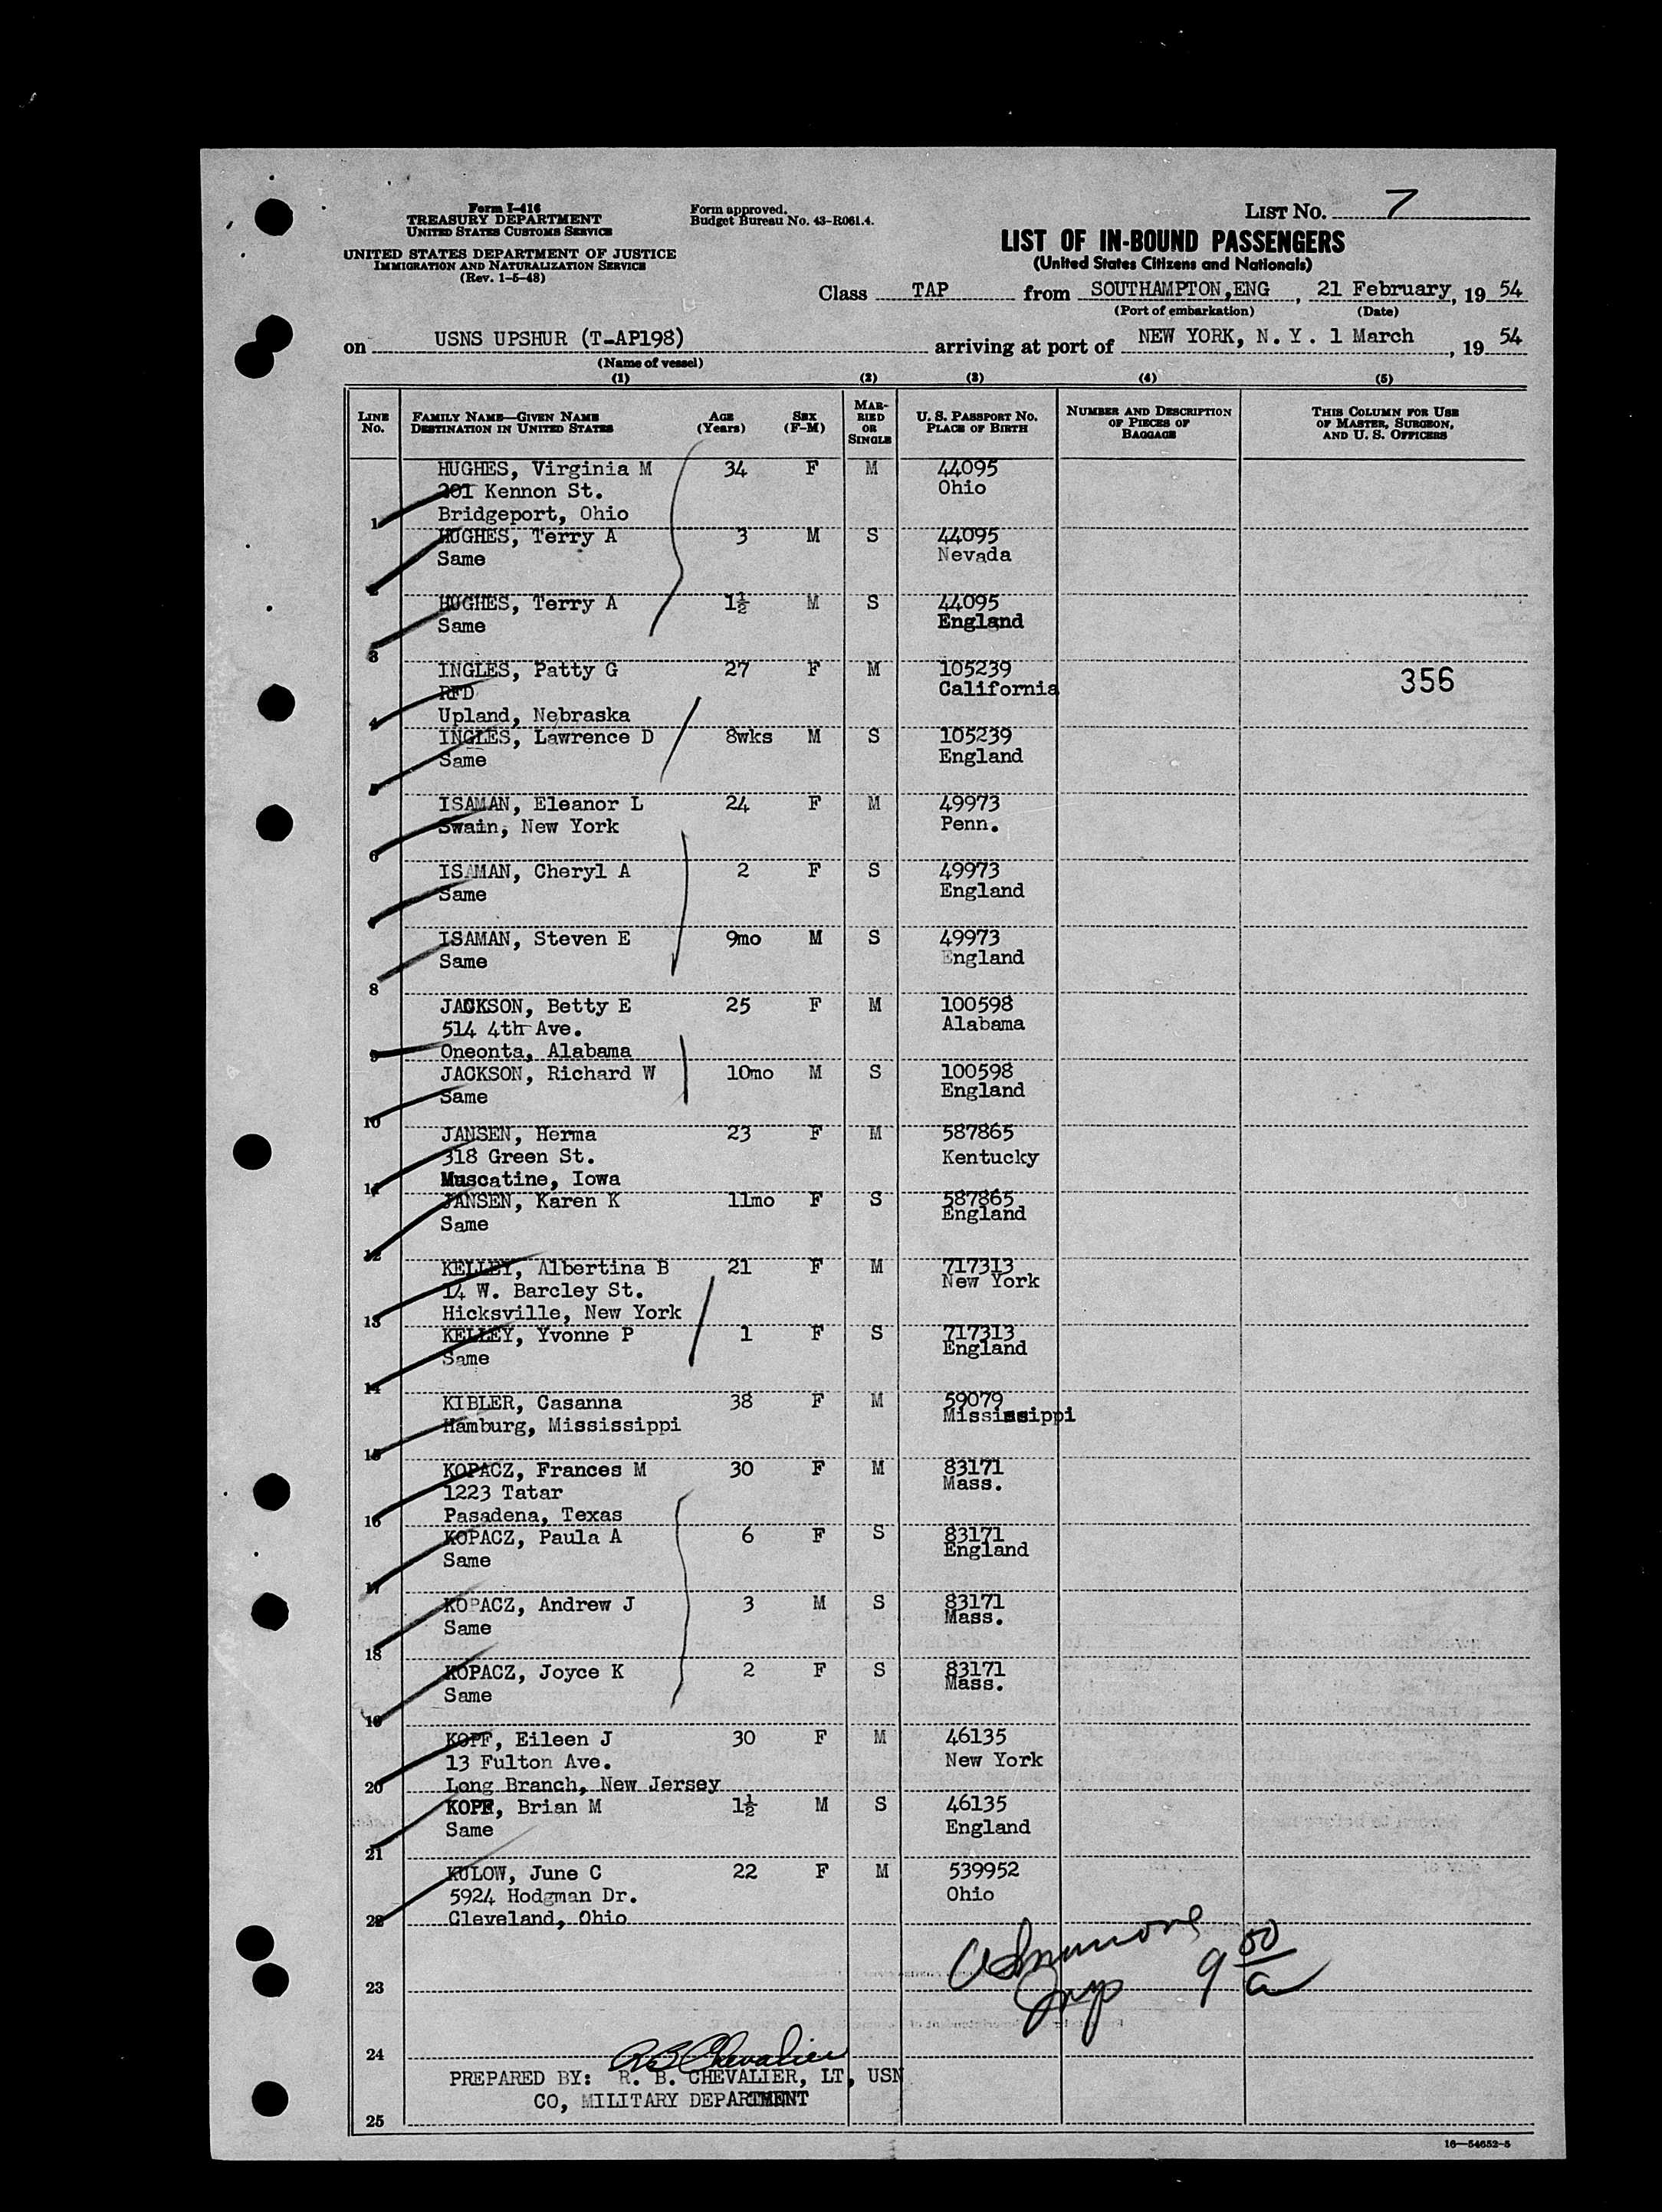 Form I-416
TREASURY DEPARTMENT
UNITED STATES CUSTOMS SERVICE
UNITED STATES DEPARTMENT OF JUSTICE
IMMIGRATION AND NATURALIZATION SERVICE
(Rev. 1-5-48)
Form approved.
Budget Bureau No. 43-R061.4.
LIST No. 7
LIST OF IN-BOUND PASSENGERS
(United States Citizens and Nationals)
Class TAP from SOUTHAMPTON,ENG, 21 February, 19 54
(Port of embarkation) (Date)
on USNS UPSHUR (T-AP198) arriving at port of NEW YORK, N.Y. 1 March, 19 54
(Name of vessel)
(1) (2) (3) (4) (5)
LINE No. FAMILY NAME—GIVEN NAME DESTINATION IN UNITED STATES AGE (Years) SEX (F-M) MARRIED OR SINGLE U. S. PASSPORT NO. PLACE OF BIRTH NUMBER AND DESCRIPTION OF PIECES OF BAGGAGE THIS COLUMN FOR USE OF MASTER, SURGEON, AND U. S. OFFICERS
HUGHES, Virginia M 34 F M 44095
201 Kennon St. Ohio
1 Bridgeport, Ohio
HUGHES, Terry A 3 M S 44095
Same Nevada
2
HUGHES, Terry A 1½ M S 44095
Same England
3
INGLES, Patty G 27 F M 105239 356
RFD California
4 Upland, Nebraska
INGLES, Lawrence D 8wks M S 105239
Same England
5
ISAMAN, Eleanor L 24 F M 49973
Swain, New York Penn.
6
ISAMAN, Cheryl A 2 F S 49973
Same England
7
ISAMAN, Steven E 9mo M S 49973
Same England
8
JACKSON, Betty E 25 F M 100598
514 4th Ave. Alabama
9 Oneonta, Alabama
JACKSON, Richard W 10mo M S 100598
Same England
10
JANSEN, Herma 23 F M 587865
318 Green St. Kentucky
11 Muscatine, Iowa
JANSEN, Karen K 11mo F S 587865
Same England
12
KELLEY, Albertina B 21 F M 717313
14 W. Barcley St. New York
13 Hicksville, New York
KELLEY, Yvonne P 1 F S 717313
Same England
14
KIBLER, Casanna 38 F M 59079
Hamburg, Mississippi Mississippi
15
KOPACZ, Frances M 30 F M 83171
1223 Tatar Mass.
16 Pasadena, Texas
KOPACZ, Paula A 6 F S 83171
Same England
17
KOPACZ, Andrew J 3 M S 83171
Same Mass.
18
KOPACZ, Joyce K 2 F S 83171
Same Mass.
19
KOPF, Eileen J 30 F M 46135
13 Fulton Ave. New York
20 Long Branch, New Jersey
KOPF, Brian M 1½ M S 46135
Same England
21
KULOW, June C 22 F M 539952
5924 Hodgman Dr. Ohio
22 Cleveland, Ohio
9 00/a
23
24
R B Chevalier
PREPARED BY: R. B. CHEVALIER, LT, USN
CO, MILITARY DEPARTMENT
25
16—54652-5